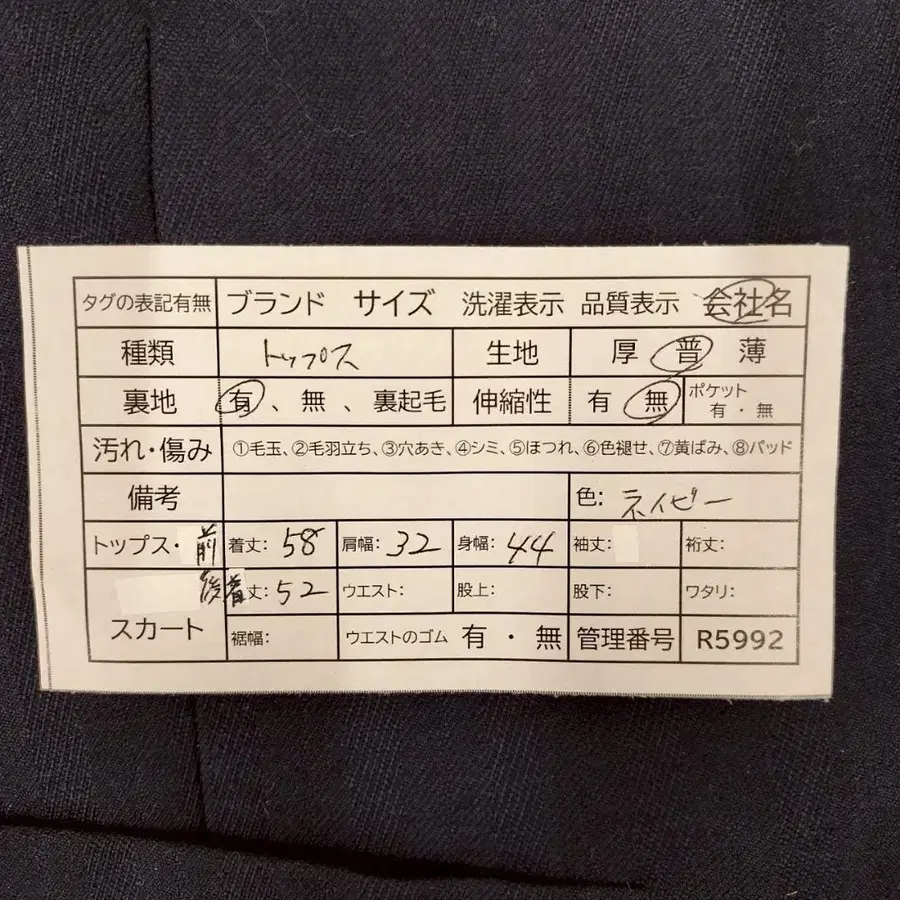 タグの表記有無 ブランド サイズ 洗濯表示 品質表示 会社名
種類 トップス 生地 厚 普 薄
裏地 有、無、裏起毛 伸縮性 有 無 ポケット 有・無
汚れ・傷み ①毛玉、②毛羽立ち、③穴あき、④シミ、⑤ほつれ、⑥色褪せ、⑦黄ばみ、⑧パッド
備考 色: ネイビー
トップス・前 着丈: 58 肩幅: 32 身幅: 44 袖丈: 裄丈:
後着丈: 52 ウエスト: 股上: 股下: ワタリ:
スカート 裾幅: ウエストのゴム 有・無 管理番号 R5992